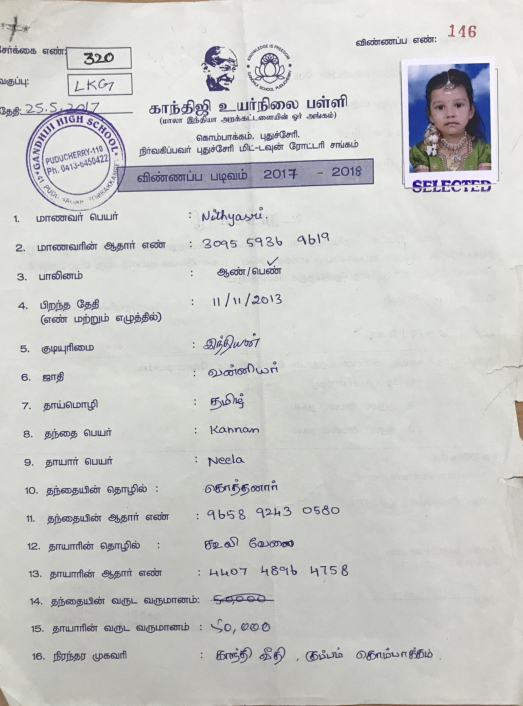 சேர்க்கை எண்: 320
விண்ணப்ப எண்: 146
வகுப்பு: LKG
தேதி: 25.5.2017
KNOWLEDGE IS FREEDOM
காந்திஜி உயர்நிலை பள்ளி
(மாலா இந்தியா அறக்கட்டளையின் ஓர் அங்கம்)
கொம்பாக்கம், புதுச்சேரி.
நிர்வகிப்பவர் புதுச்சேரி மிட்-டவுன் ரோட்டரி சங்கம்
GANDHIJI HIGH SCHOOL
PUDUCHERRY-110
Ph. 0413-6450422
விண்ணப்ப படிவம் 2017 - 2018
SELECTED
1. மாணவர் பெயர் : Nithyasri.
2. மாணவரின் ஆதார் எண் : 3095 5936 9619
3. பாலினம் : ஆண்/பெண் ✓
4. பிறந்த தேதி : 11/11/2013
(எண் மற்றும் எழுத்தில்)
5. குடியுரிமை : இந்தியன்
6. ஜாதி : வன்னியர்
7. தாய்மொழி : தமிழ்
8. தந்தை பெயர் : Kannan
9. தாயார் பெயர் : Neela
10. தந்தையின் தொழில் : கொத்தனார்
11. தந்தையின் ஆதார் எண் : 9658 9243 0580
12. தாயாரின் தொழில் : கூலி வேலை
13. தாயாரின் ஆதார் எண் : 4407 4896 4758
14. தந்தையின் வருட வருமானம்: 50,000
15. தாயாரின் வருட வருமானம் : 50,000
16. நிரந்தர முகவரி : காந்தி வீதி,